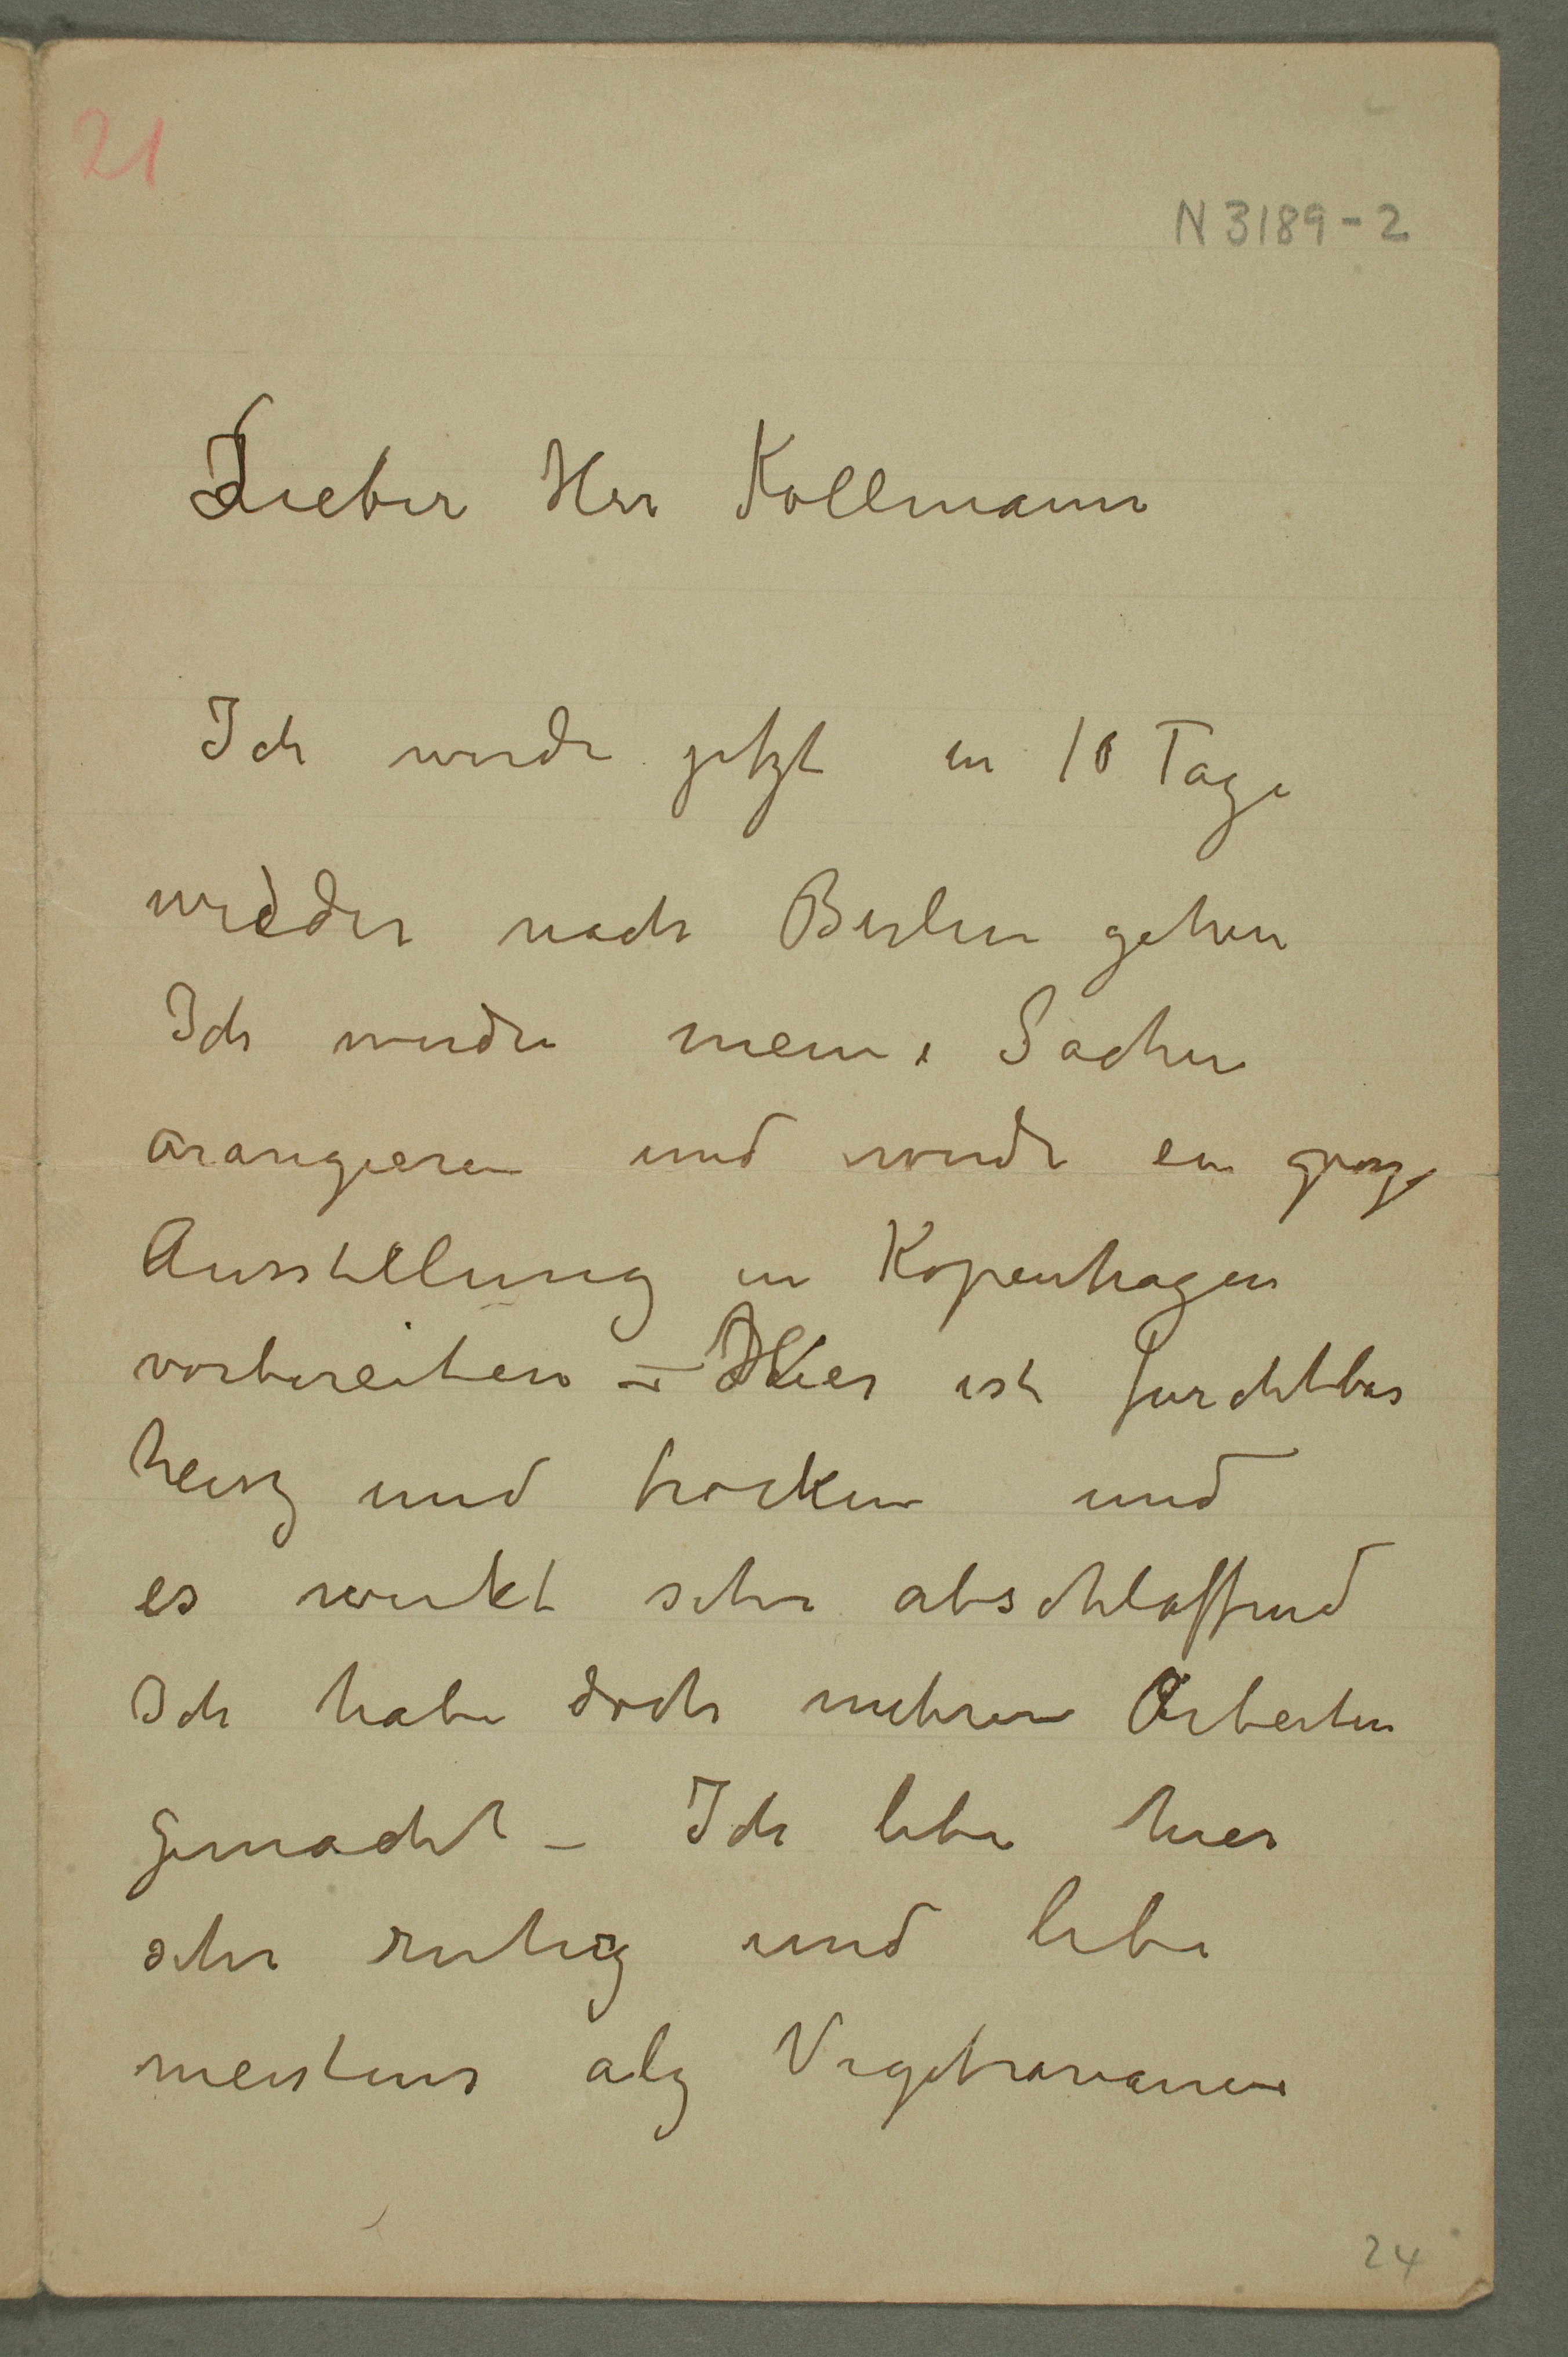 21
N 3189-2
Lieber Herr Kollmann
Ich werde jetzt in 10 Tage
wieder nach Berlin gehen
Ich werde meine Sachen
arangieren und werde ein
Ausstellung in Kopenhagen
vorbereiten – Hier ist furchtbar
heisz und trocken und
es wirkt sehr abschlaffend
Ich habe doch mehrere Arbeiten
gemacht – Ich lebe hier
sehr ruhig und lebe
meistens als Vegetarianer
24